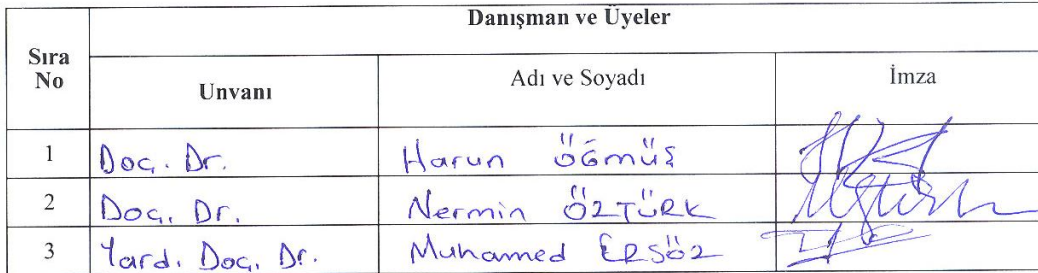 Danışman ve Üyeler
Sıra No Unvanı Adı ve Soyadı İmza
1 Doç. Dr. Harun ÖĞMÜŞ
2 Doç. Dr. Nermin ÖZTÜRK
3 Yard. Doç. Dr. Muhamed ERSÖZ